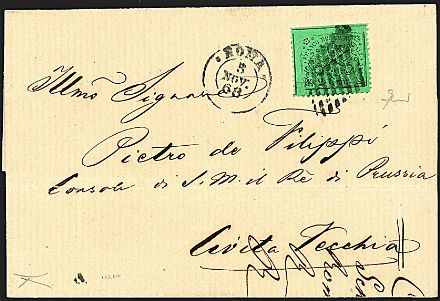 ROMA
5
NOV.
68
Illmo Signore
Pietro de Filippi
Console di S. M. il Rè di Prussia
Civita Vecchia